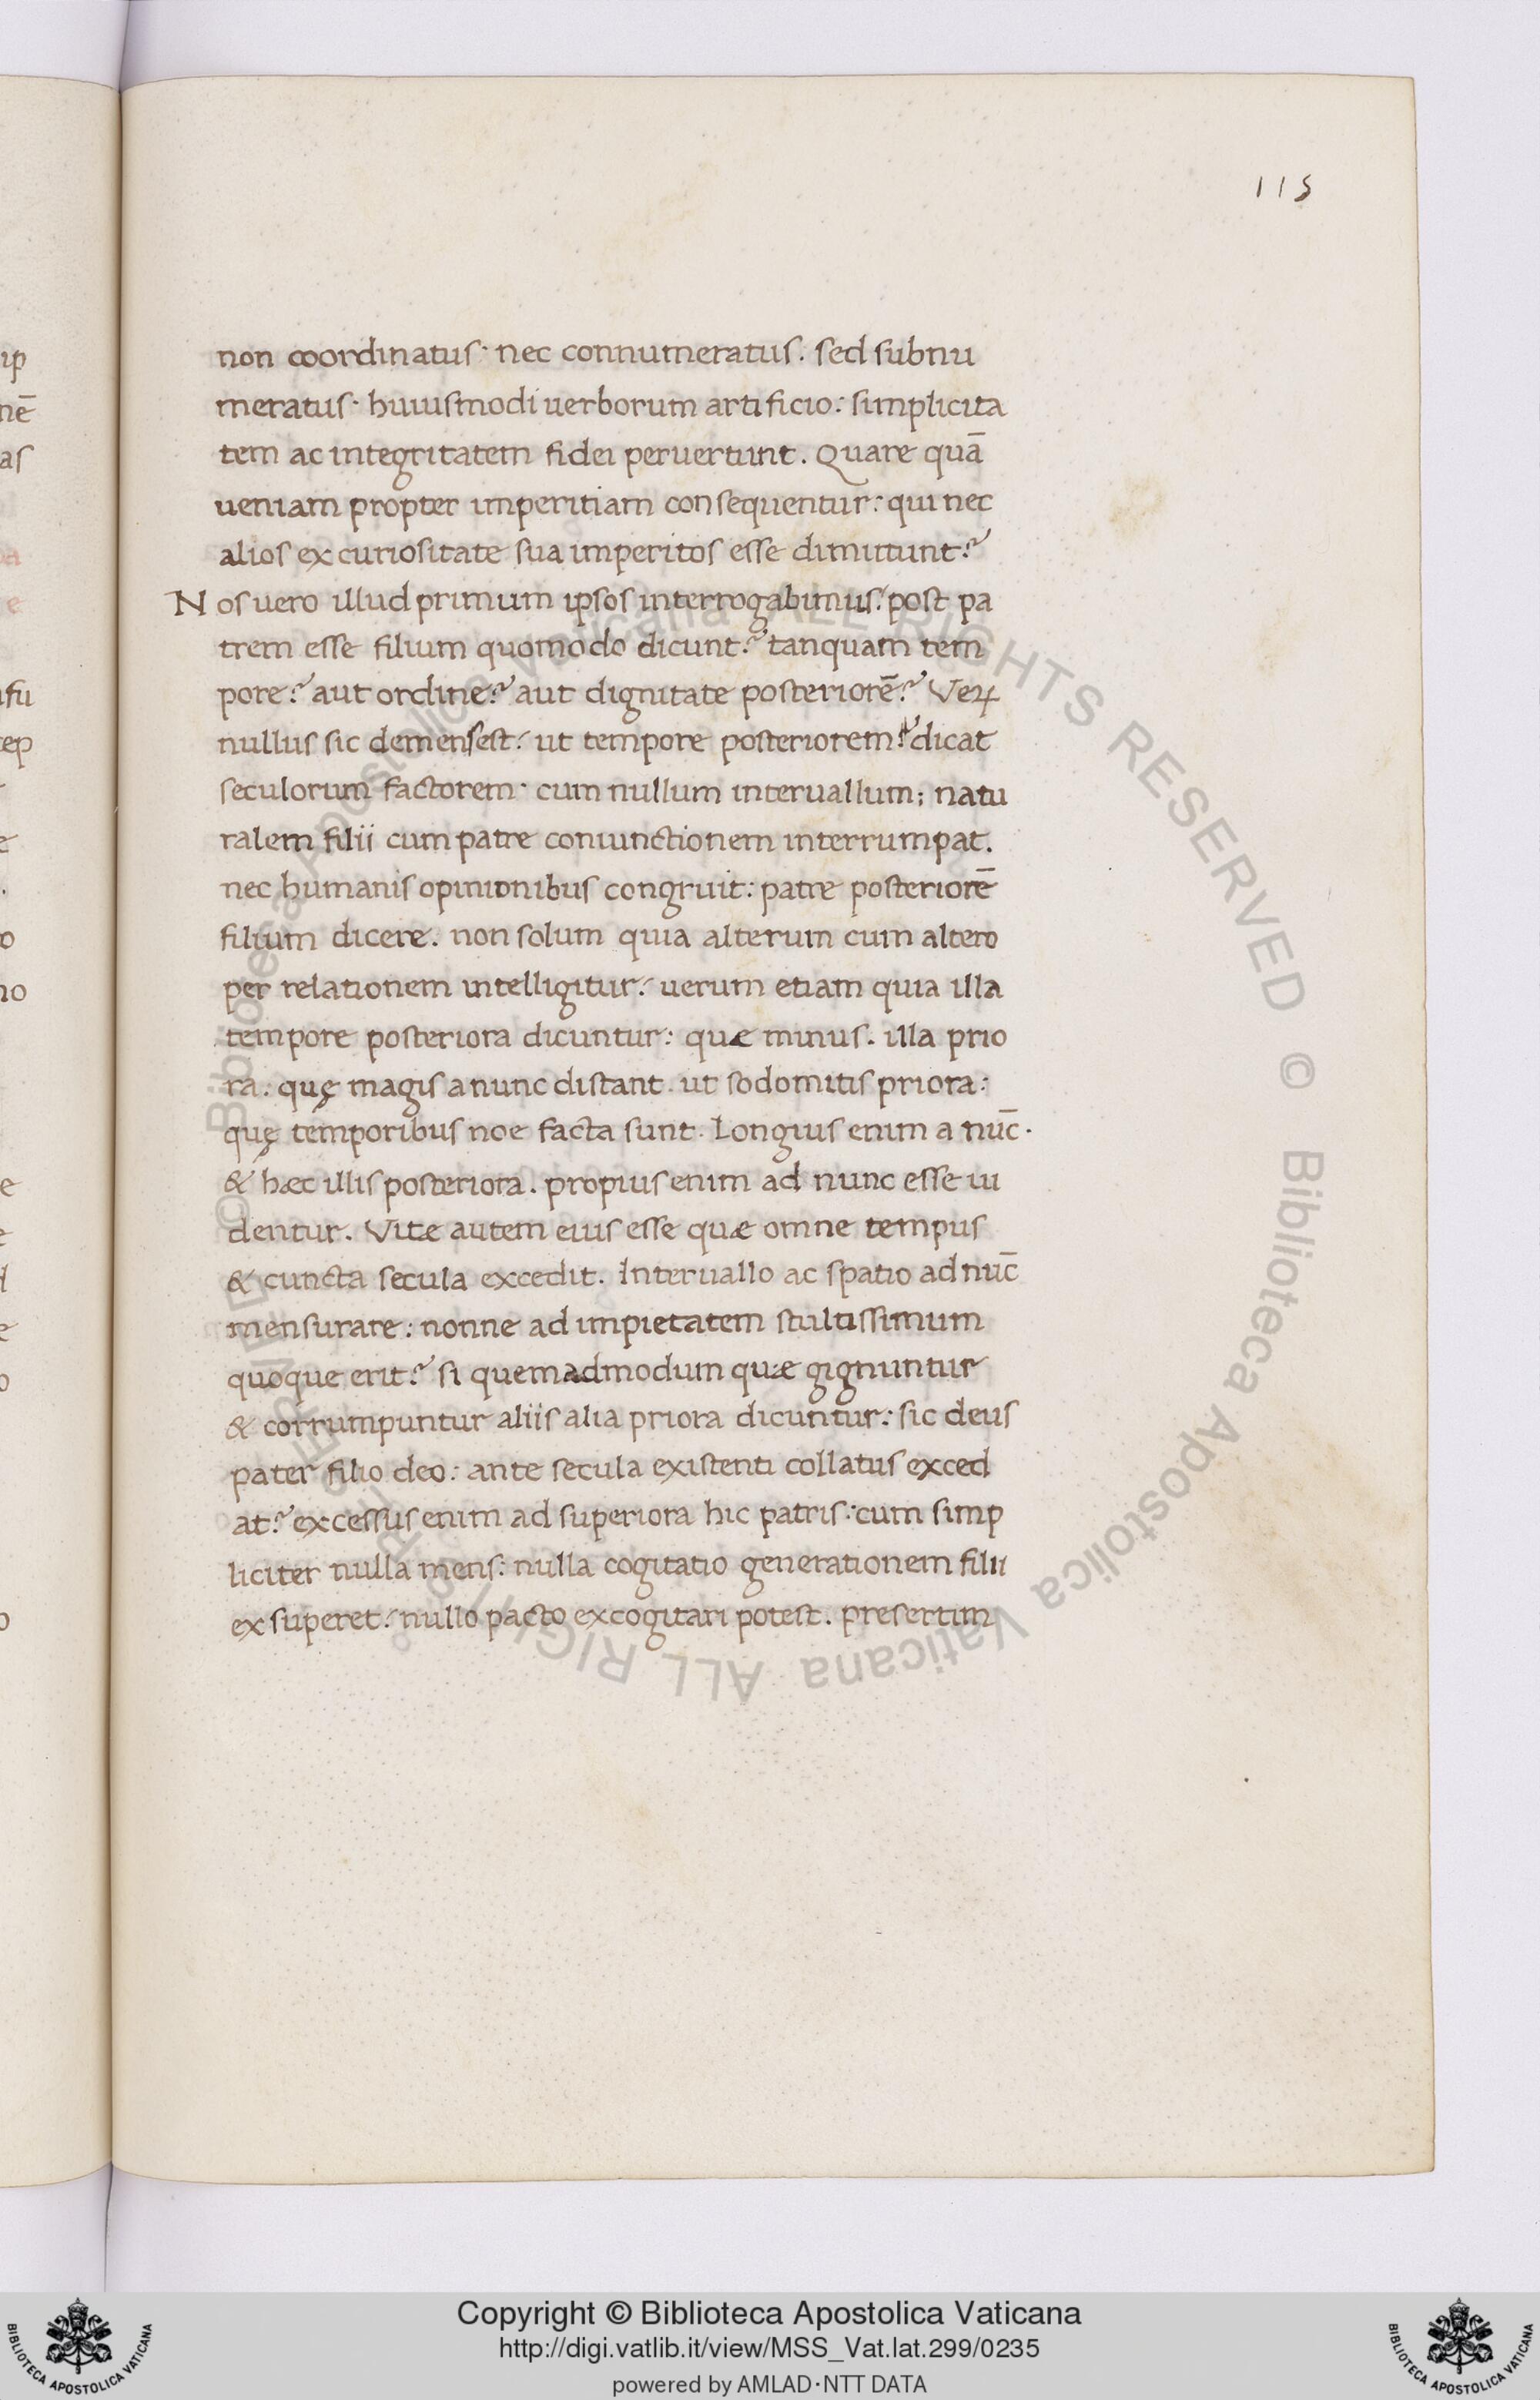 115
non coordinatus· nec connumeratus. sed subnu
meratus· huiusmodi uerborum artificio: simplicita
tem ac integritatem fidei peruertunt. Quare quā
ueniam propter imperitiam consequentur: qui nec
alios ex curiositate sua imperitos esse dimittunt?
Nos uero illud primum ipsos interrogabimus: post pa
trem esse filium quomodo dicunt? tanquam tem
pore? aut ordine? aut dignitate posteriorē? Veꝝ
nullus sic demens est: ut tempore posteriorem? dicat
seculorum factorem· cum nullum interuallum; natu
ralem filii cum patre coniunctionem interrumpat.
nec humanis opinionibus congruit: patre posteriorē
filium dicere. non solum quia alterum cum altero
per relationem intelligitur: uerum etiam quia illa
tempore posteriora dicuntur: quæ minus. illa prio
ra: quę magis a nunc distant. ut sodomitis priora:
quę temporibus noe facta sunt. Longius enim a nūc·
& hæc illis posteriora. propius enim ad nunc esse ui
dentur. Vitæ autem eius esse quæ omne tempus
& cuncta secula excedit. Interuallo ac spatio ad nūc
mensurare: nonne ad impietatem stultissimum
quoque erit? si quemadmodum quæ gignuntur
& corrumpuntur aliis alia priora dicuntur: sic deus
pater filio deo: ante secula existenti collatus exced
at? excessus enim ad superiora hic patris: cum simp
liciter nulla mens: nulla cogitatio generationem filii
ex superet: nullo pacto excogitari potest. presertim
ip
nē
as
a
e
ifu
ep
e
o
no
e
e
d
e
o
o
© Biblioteca Apostolica Vaticana ALL RIGHTS RESERVED © Biblioteca Apostolica Vaticana ALL RIGHTS RESERVED
Copyright © Biblioteca Apostolica Vaticana
http://digi.vatlib.it/view/MSS_Vat.lat.299/0235
powered by AMLAD·NTT DATA
BIBLIOTECA APOSTOLICA VATICANA
BIBLIOTECA APOSTOLICA VATICANA